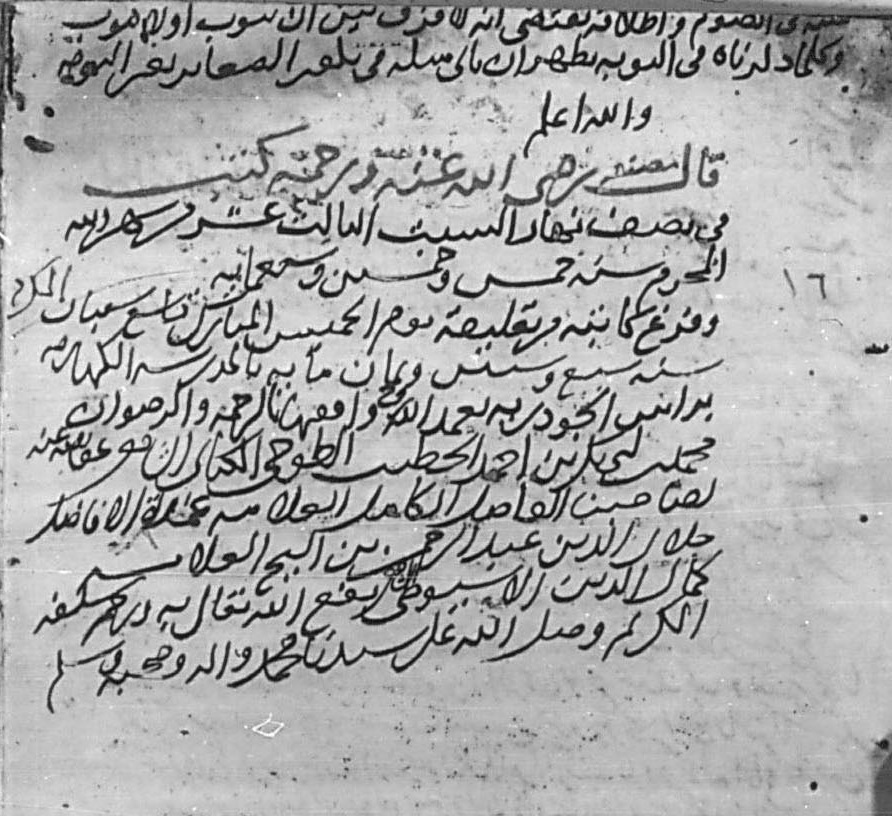 شيئا في الصوم واطلاقه يقتضى انه لا فرق بين ان يتوب او لا يتوب
وكلما ذكرناه في التوبه يظهر ان ياتى مثله في تكفير الصغاير بغير التوبه
والله اعلم
قال مصنفه رضى الله عنه ورحمه كتبت
في نصف نهار السبت الثالث عشر من شهر الله
المحرم سنه خمس وخمسين وسبعمايه
وفرغ كاتبه من تعليقه يوم الخميس المبارك تاسع شعبان المكرم
سنه سبع وستين وثمان مايه بالمدرسه الكهاريه
بدراس الجودريه تغمد الله واقفها بالرحمه والرضوان
محمد بن احمد الخطيب الطوخي عفا الله عنه
لصاحبنا الفاضل الكامل العلامه عمدة الافاضل
جلال الدين عبد الرحمن بن الشيخ العلامه
كمال الدين الاسيوطي الشافعي نفع الله تعالى به وبسلفه
الكريم وصلى الله على سيدنا محمد واله وصحبه وسلم
١٦